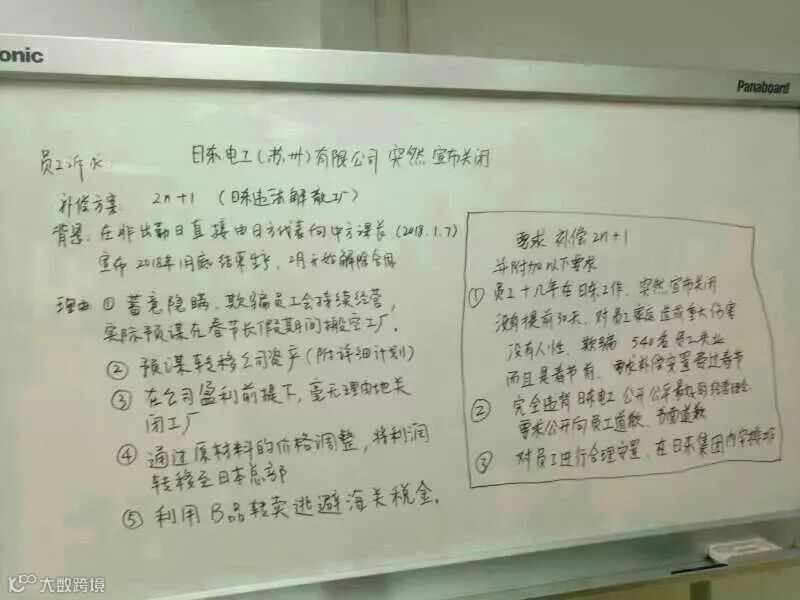 onic
Panaboard
员工诉求: 日东电工(苏州)有限公司 突然宣布关闭
补偿方案: 2n+1 (日东违法解散工厂)
背景: 在非出勤日直接由日方代表向中方课长 (2018.1.7)
宣布 2018年1月底结束生产, 2月开始解除合同
理由: ① 蓄意隐瞒、欺骗员工会持续经营,
实际预谋在春节长假期间搬空工厂.
② 预谋转移公司资产 (附详细计划)
③ 在公司盈利前提下, 毫无理由地关
闭工厂
④ 通过原材料的价格调整, 将利润
转移至日本总部
⑤ 利用B品转卖逃避海关税金.
要求 补偿 2n+1
并附加以下要求
① 员工十几年在日东工作, 突然宣布关闭
没有提前30天, 对员工家庭造成重大伤害
没有人性, 欺骗 540名员工失业
而且是春节前, 要求补偿安置费过春节
② 完全违背日东电工公开公平 的经营理念
要求公开向员工道歉, 书面道歉
③ 对员工进行合理安置, 在日东集团内安排
大数跨境